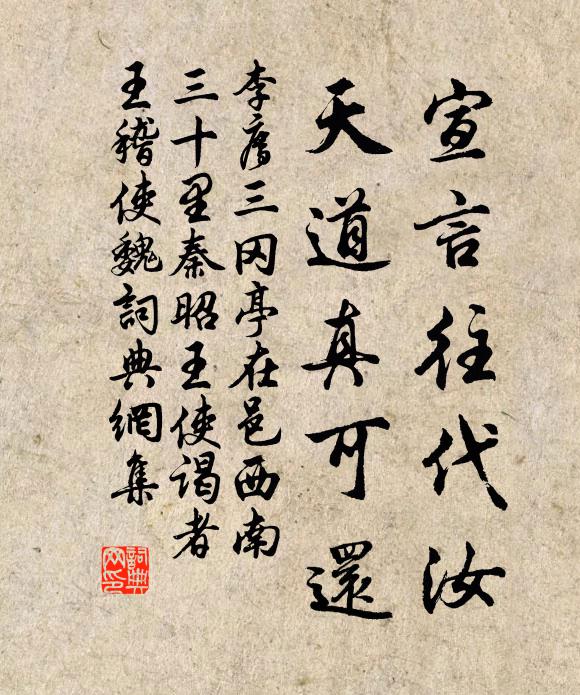 宣言往代汝
天道真可還
李膺三冈亭在邑西南
三十里秦昭王使谒者
王稽使魏詞典網集
詞典网印